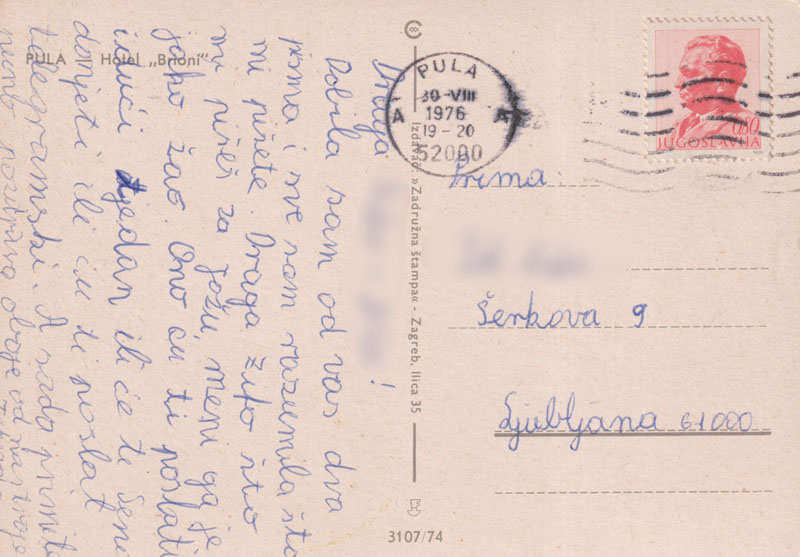 PULA Hotel „Brioni"
Draga !
Dobila sam od vas dva
pisma i sve sam razumila šta
mi pišete. Draga što
mi pišeš za Jožu, meni ga je
jako žao. Ono ću ti poslati
idući tjedan ili će ti
donjeti ili ću ti poslat
telegramski. A sada primite
puno pozdrava oboje od nas troje
Izdavač: »Zadružna štampa« - Zagreb, Ilica 35
3107/74
PULA
30-VIII
1976
19-20
A A
52000
0,80
JUGOSLAVIJA
Prima:
Šerkova 9
Ljubljana 61000